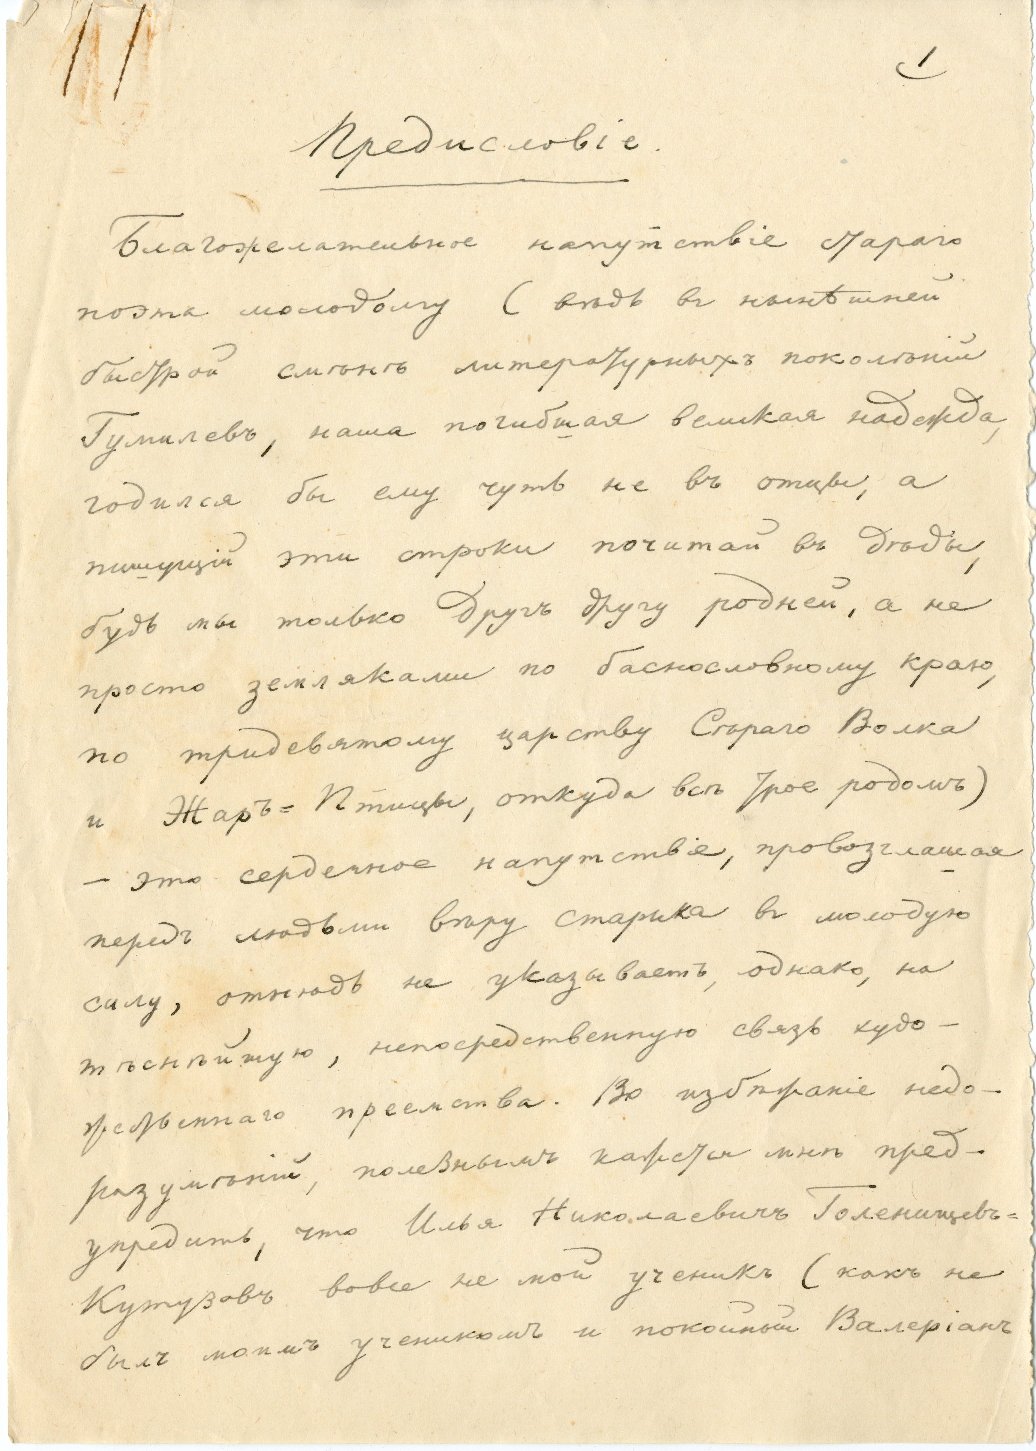 1
Предисловіе.
Благожелательное напутствіе стараго
поэта молодому (вѣдь въ нынѣшней
быстрой смѣнѣ литературныхъ поколѣній
Гумилевъ, наша погибшая великая надежда,
годился бы ему чуть не въ отцы, а
пишущій эти строки почитай въ дѣды,
будь мы только другъ другу родней, а не
просто земляками по баснословному краю,
по тридевятому царству Сѣраго Волка
и Жаръ=Птицы, откуда всѣ трое родомъ)
— это сердечное напутствіе, провозглашая
передъ людьми вѣру старика въ молодую
силу, отнюдь не указываетъ, однако, на
тѣснѣйшую, непосредственную связь худо-
жественнаго преемства. Во избѣжаніе недо-
разумѣній, полезнымъ кажется мнѣ пред-
упредить, что Илья Николаевичъ Голенищевъ=
Кутузовъ вовсе не мой ученикъ (какъ не
былъ моимъ ученикомъ и покойный Валеріанъ